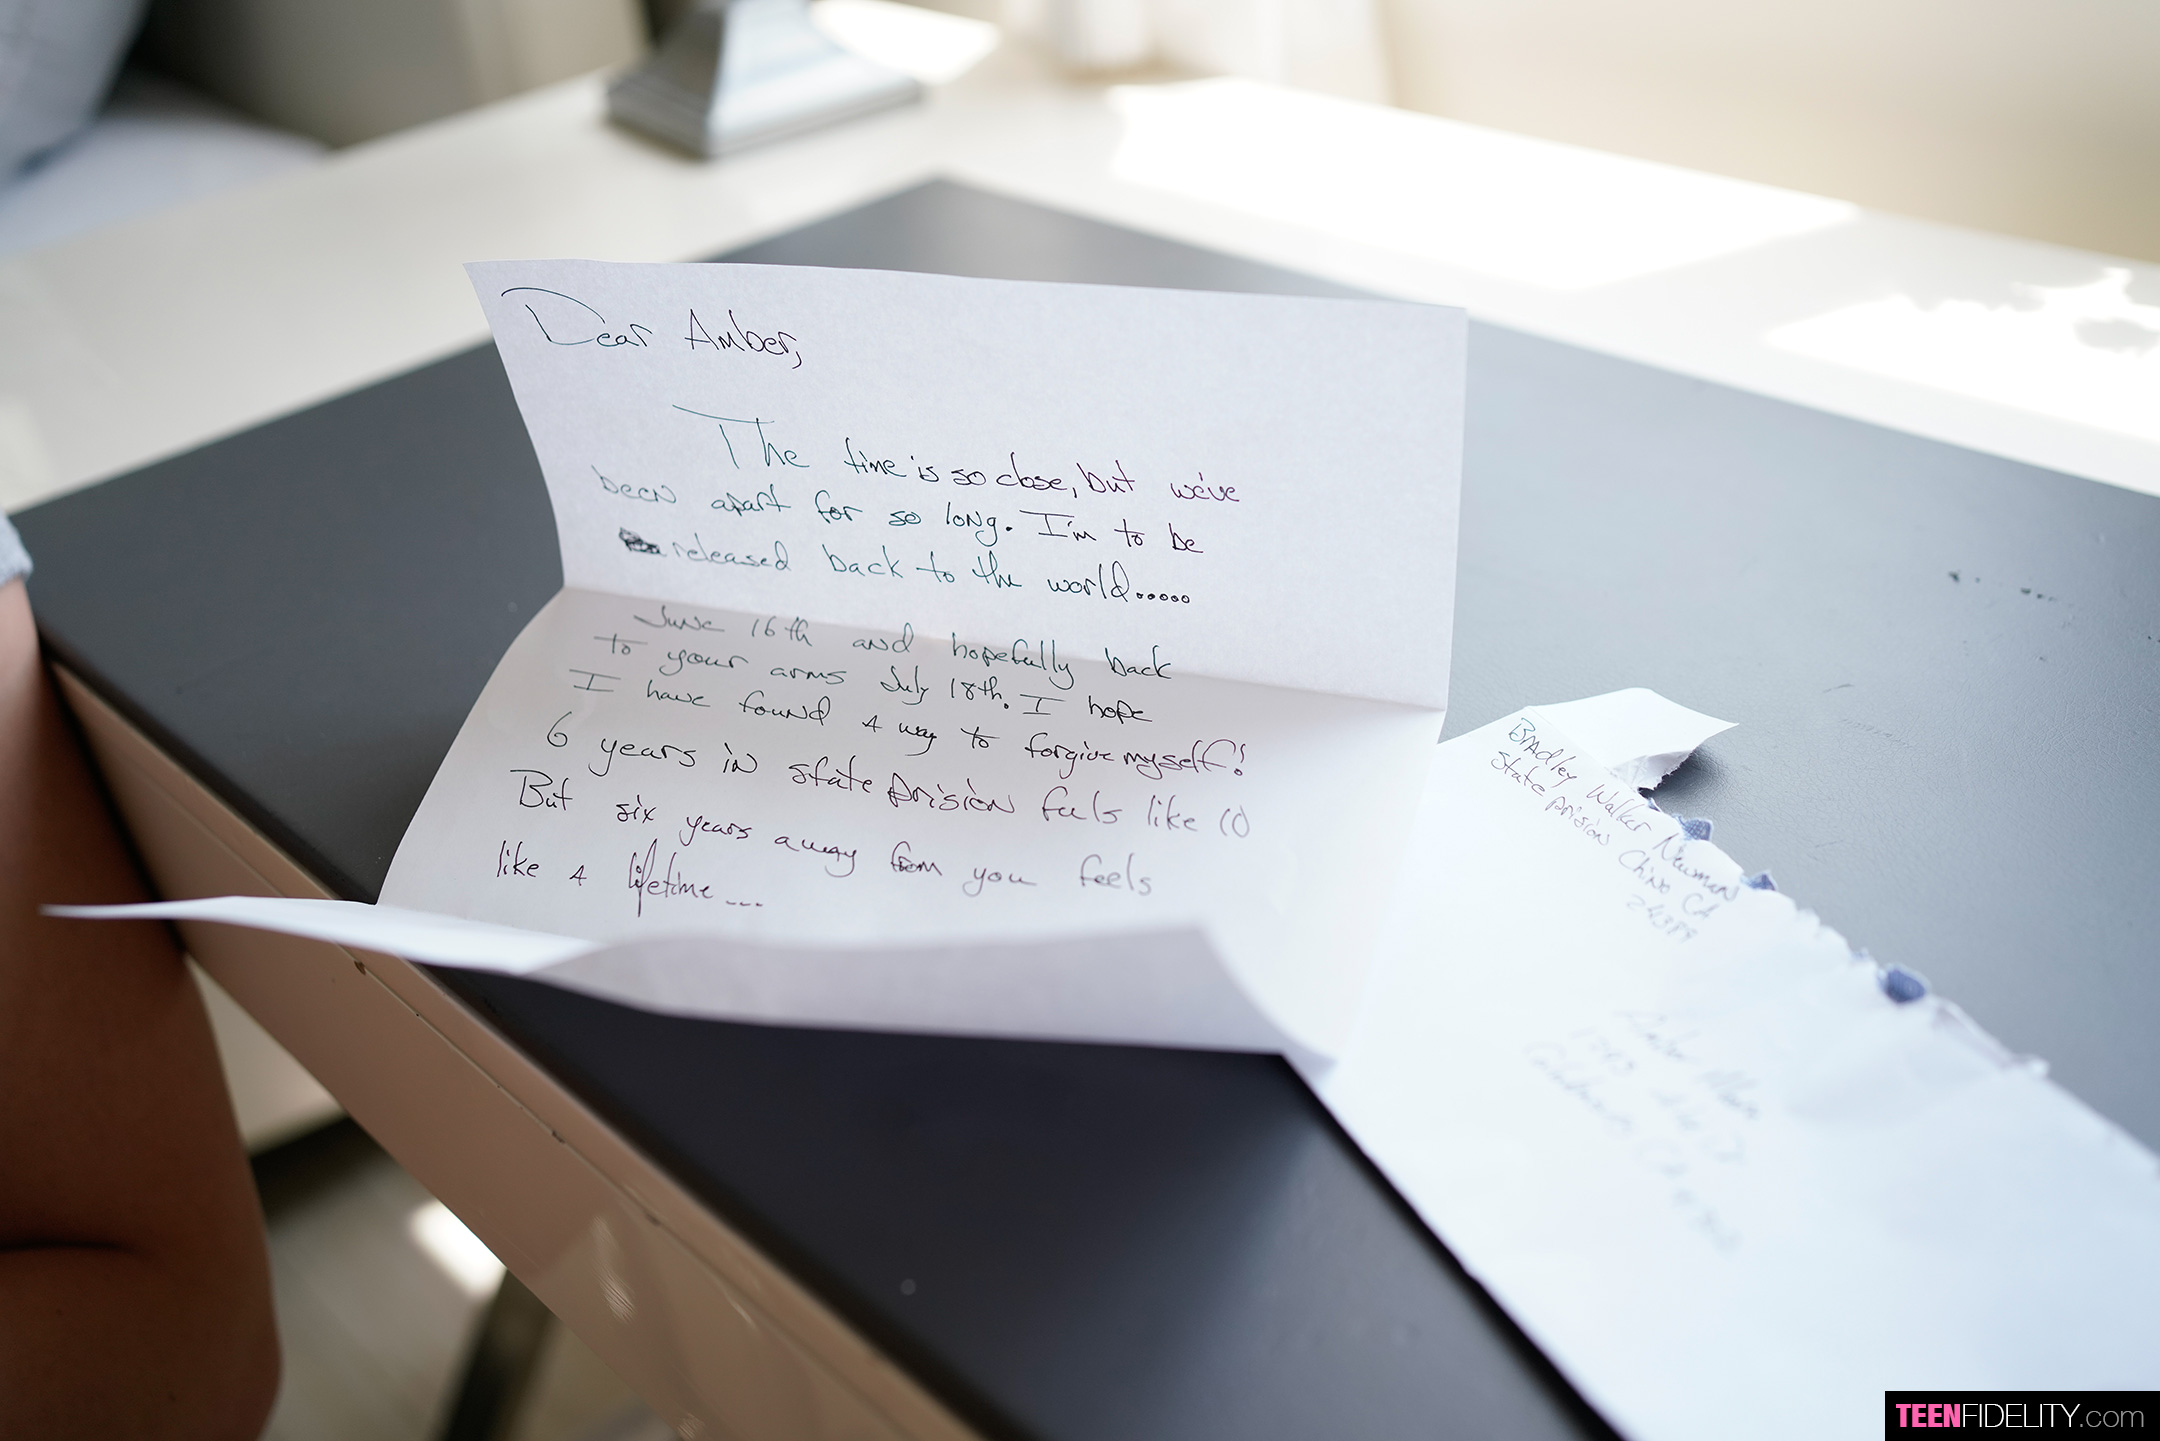 Dear Amber,
The time is so close, but we've
been apart for so long. I'm to be
released back to the world.....
June 16th and hopefully back
to your arms July 18th. I hope
I have found a way to forgive myself!
6 years in state prision feels like 10
But six years away from you feels
like a lifetime...
Bradley Walker Newman
State prision Chino CA
24389
TEENFIDELITY.com